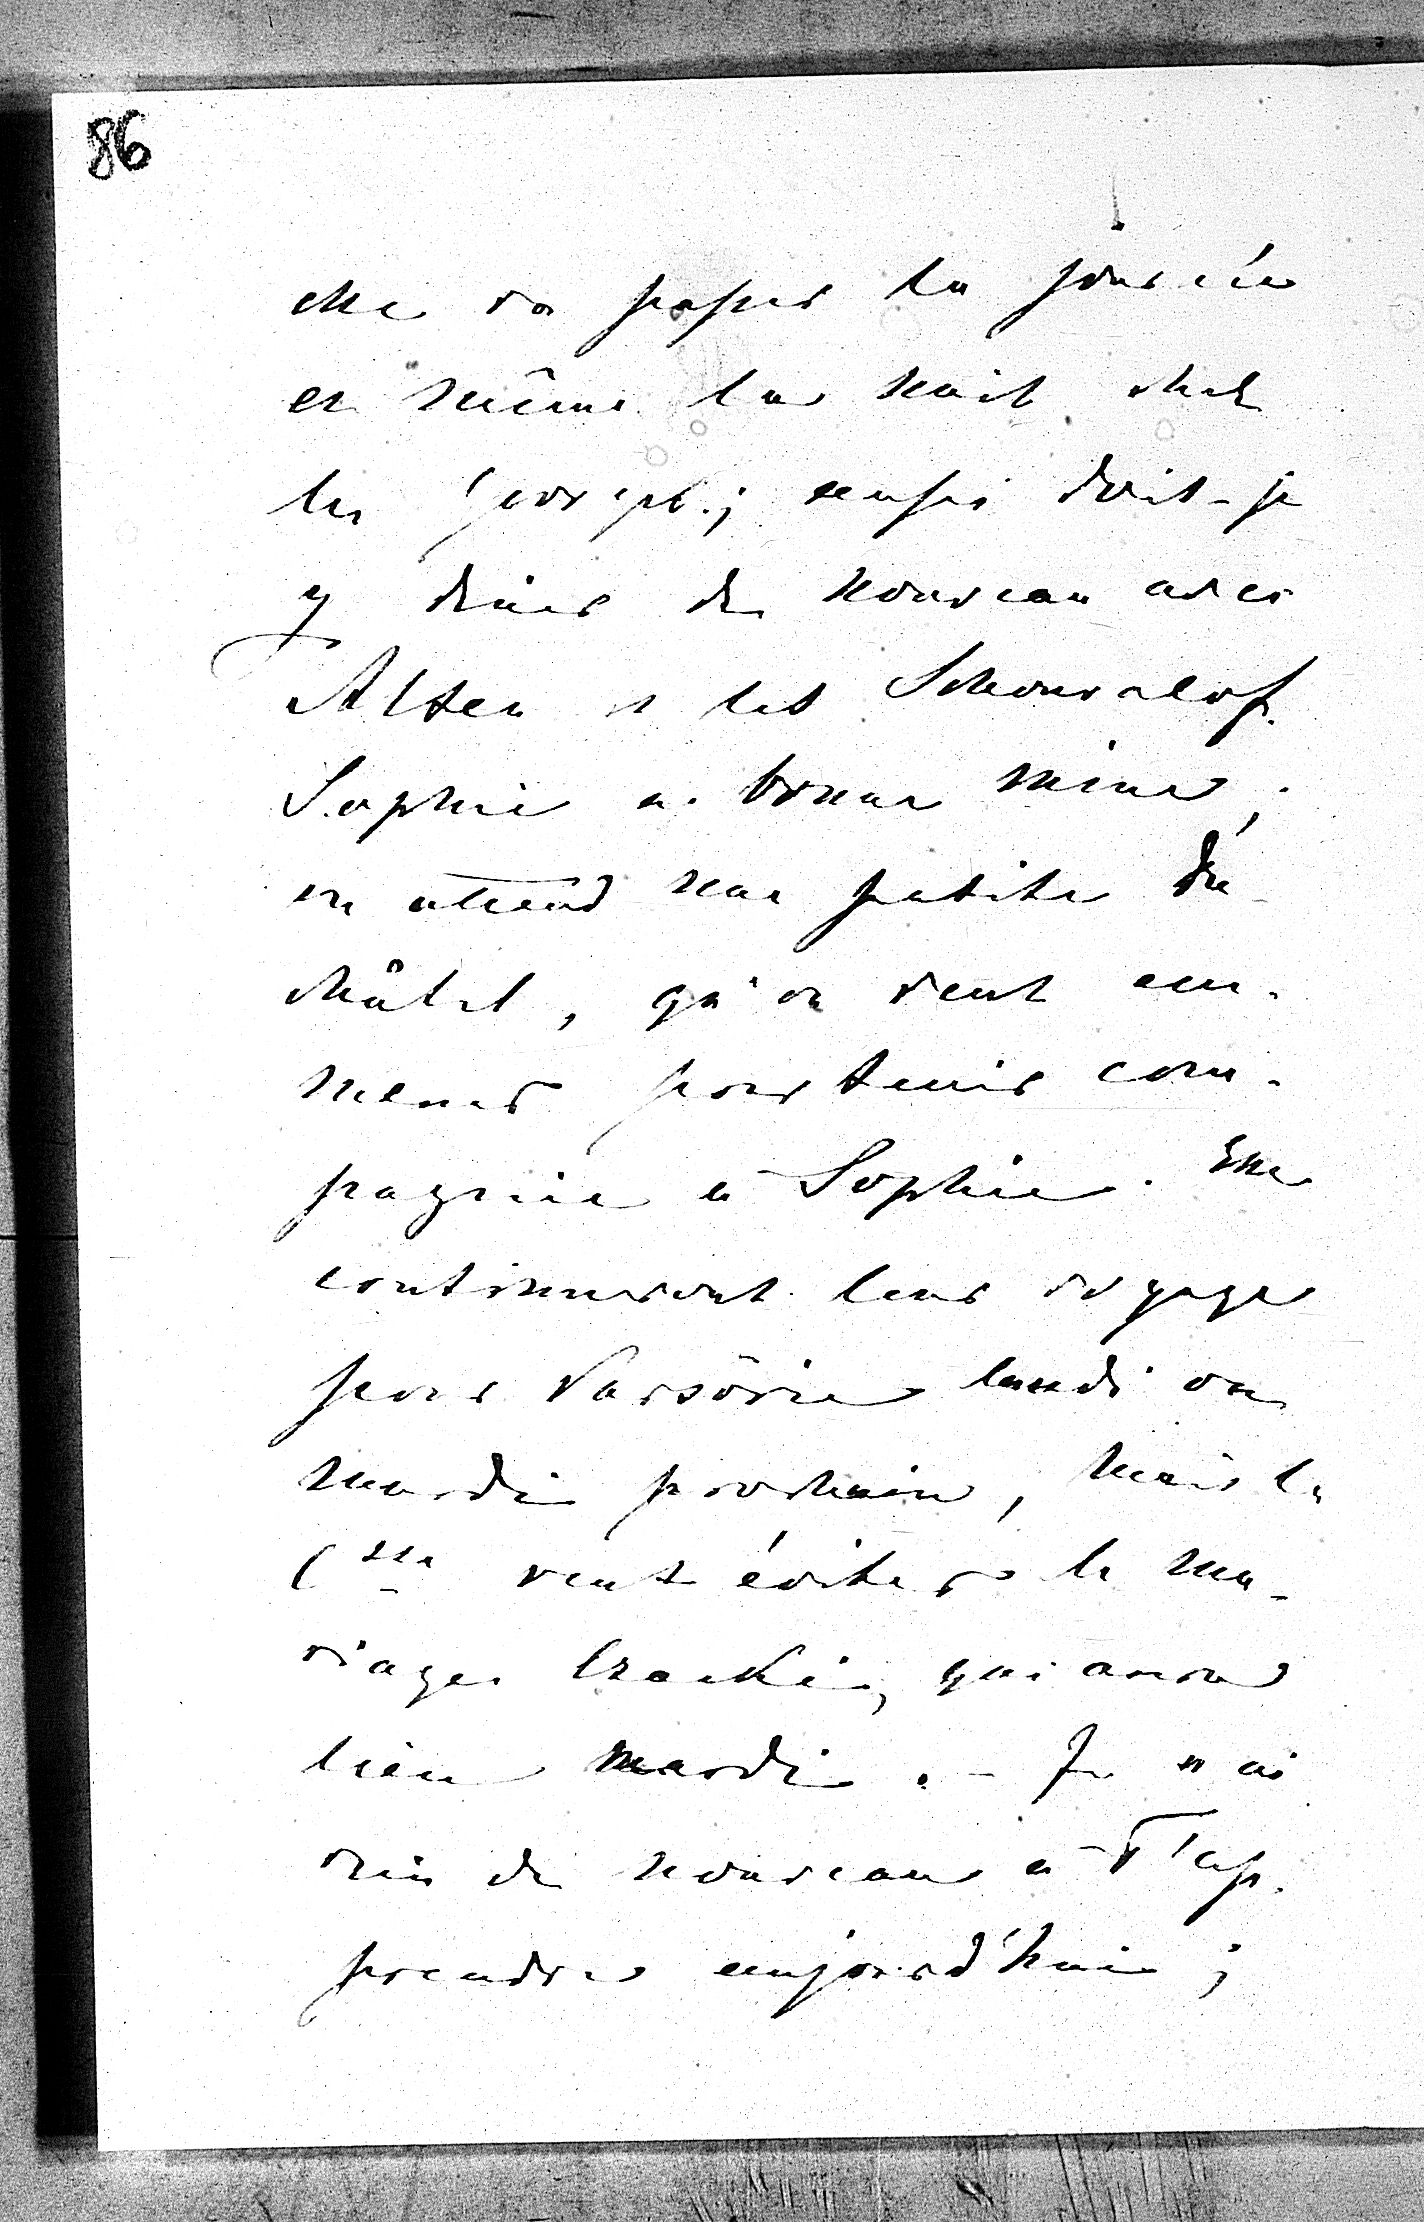 86
elle va passer la journée
et même la nuit chez
les Georges; aussi dois-je
y dîner de nouveau avec
Alten et les Schouvalof.
Sophie a bonne mine;
on attend une petite Du
châtel, qu'on veut em-
mener pour tenir com-
pagnie à Sophie. Elle
continueront leur voyage
pour Varsovie lundi ou
mardi prochain, mais la
Csse veut éviter le ma-
riage Czacki, qui aura
lieu mardi. - Je n'ai
rien de nouveau à T'ap-
prendre aujourd'hui;